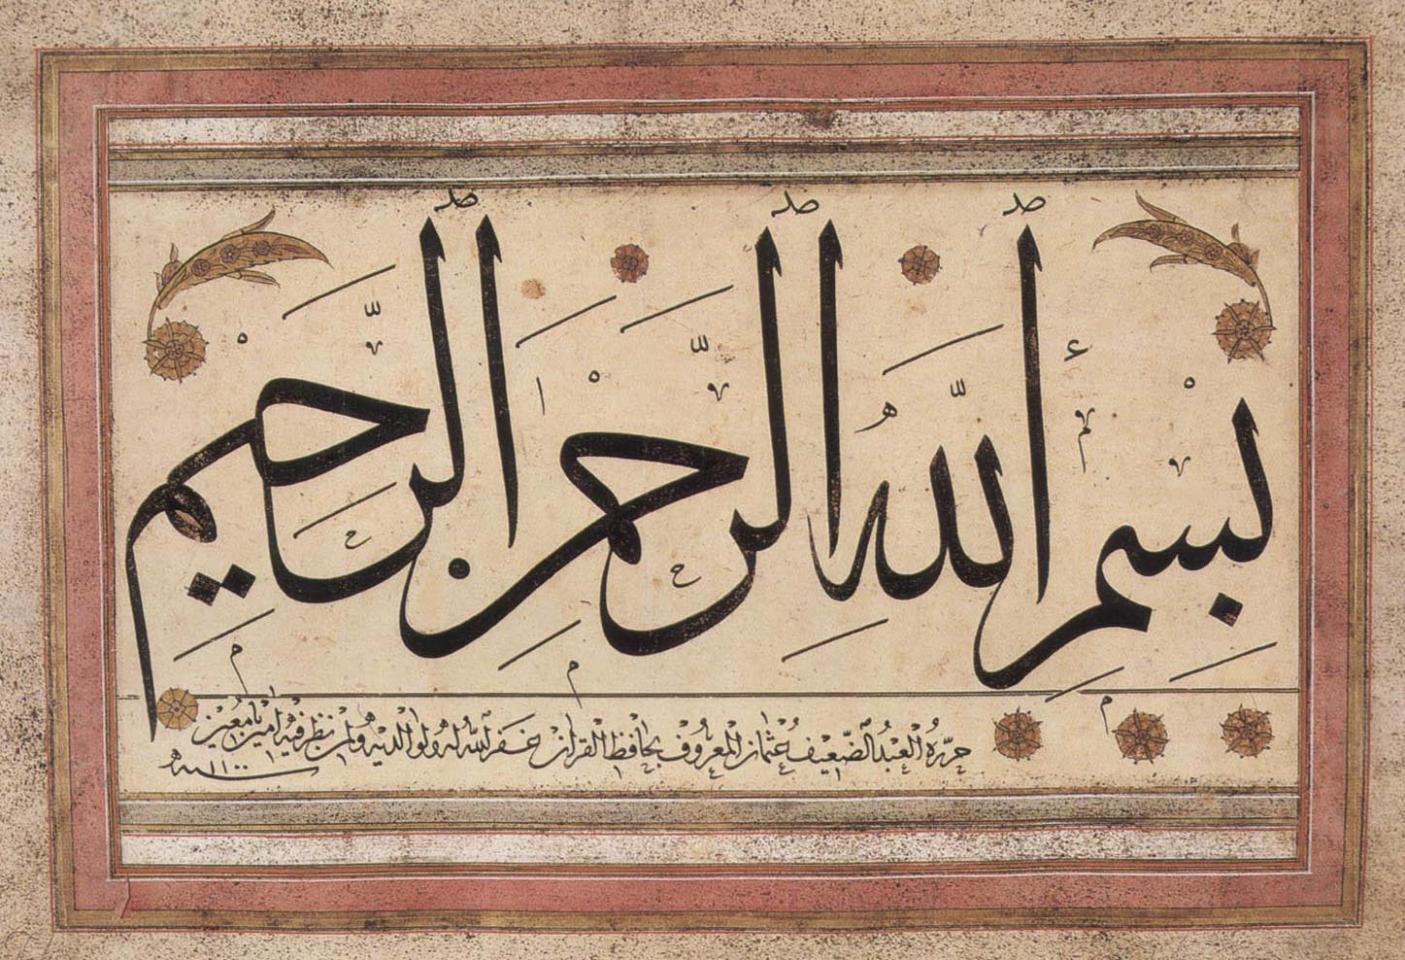 بسم الله الرحمن الرحيم
حرره العبد الضعيف عثمان المعروف بحافظ القرآن غفر الله له ولوالديه ولمن نظر فيه آمين يا معين
سنه ١١٠٠